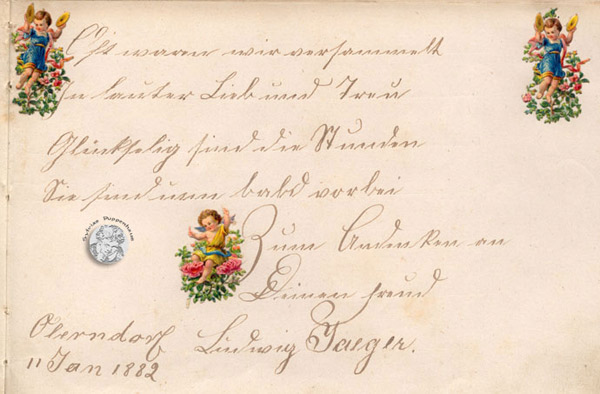 Oft waren wir versammelt
In lauter Lieb und Treu
Glückselig sind die Stunden
Sie sind nun bald vorbei
Zum Andenken an
Deinen Freund
Oberndorf Ludwig Jaeger.
11 Jan 1882
Sabries Puppenhaus